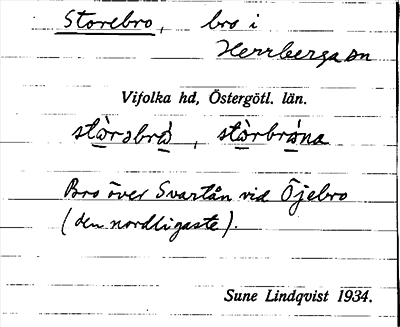 Storebro, bro i
Herrberga sn
Vifolka hd, Östergötl. län.
stòrəbrò̤, stòrbró̤na
Bro över Svartån vid Öjebro
(den nordligaste).
Sune Lindqvist 1934.